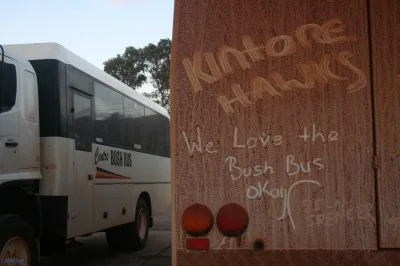 Centre BUSH BUS
KINTORE
HAWKS
We Love the
Bush Bus
okay
SPENCER